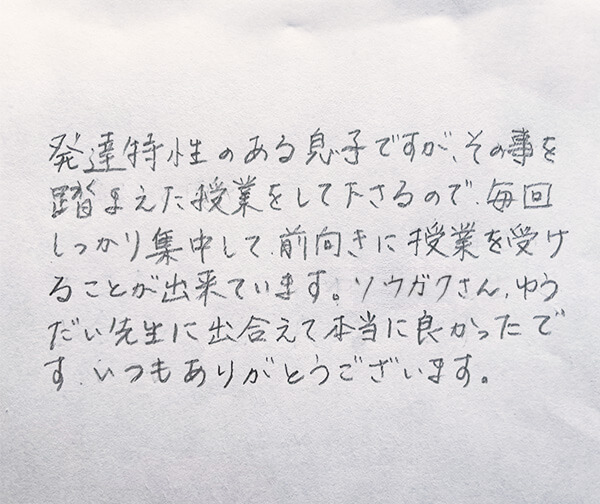 発達特性のある息子ですが、その事を
踏まえた授業をして下さるので、毎回
しっかり集中して、前向きに授業を受け
ることが出来ています。ソウガクさん、ゆう
だい先生に出合えて本当に良かったで
す、いつもありがとうございます。